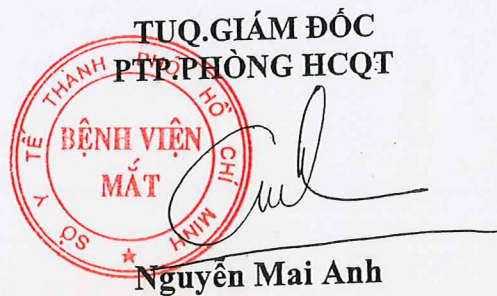 TUQ.GIÁM ĐỐC
PTP.PHÒNG HCQT
SỞ Y TẾ THÀNH PHỐ HỒ CHÍ MINH
BỆNH VIỆN
MẮT
Nguyễn Mai Anh